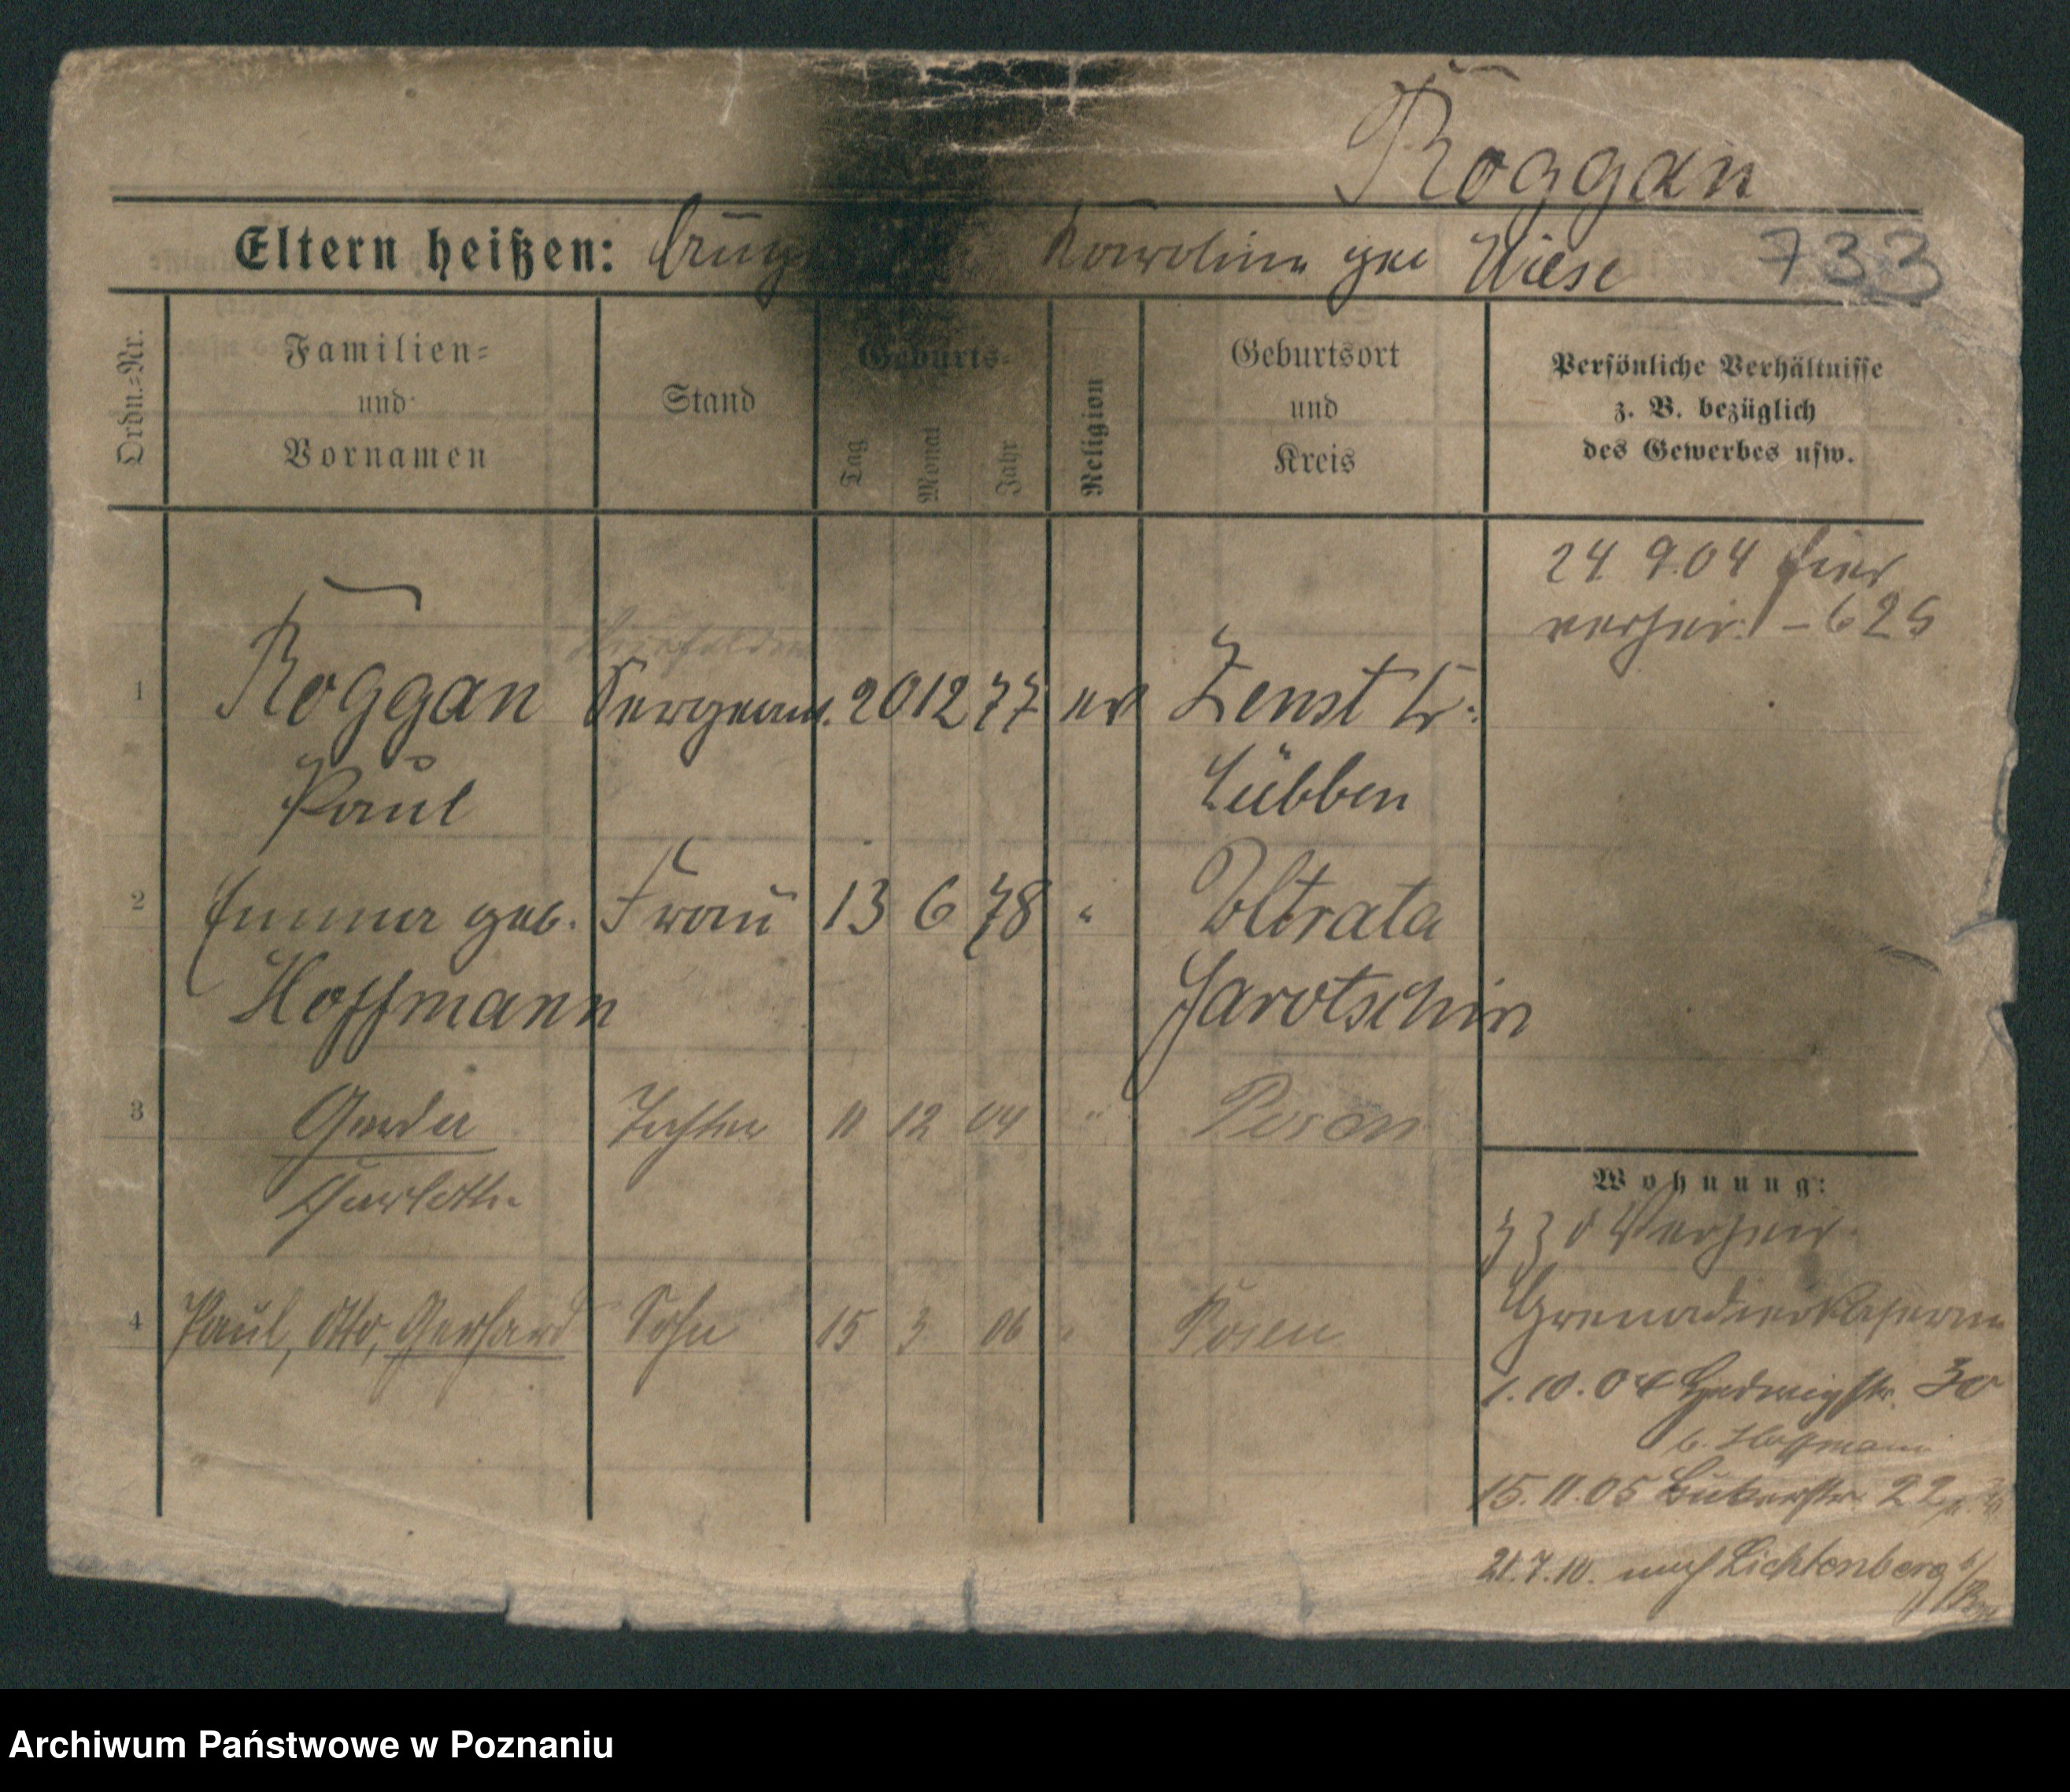 Roggan
Eltern heißen: Karoline geb Wiese 733
Ordn.-Nr.
Familien-
und
Vornamen
Stand
Geburts-
Tag
Monat
Jahr
Religion
Geburtsort
und
Kreis
Persönliche Verhältnisse
z. B. bezüglich
des Gewerbes usw.
24 9.04 hier
verheir. – 625
1 Roggan Sergeant. 20 12 77 ev Zenst Kr.
Paul Lübben
2 Emma geb. Frau 13 6 78 " Woltrata
Hoffmann Jarotschin
3 Gerda Tochter 11 12 04 " Posen
Charlotte
4 Paul, Otto, Gerhard Sohn 15 3 06 " Posen
Wohnung:
Verheir.
Grenadierkaserne
1.10.04 Hedwigstr. 30
b. Hoffmann
15.11.05 22
21.7.10. nach Lichtenberg b/
Archiwum Państwowe w Poznaniu